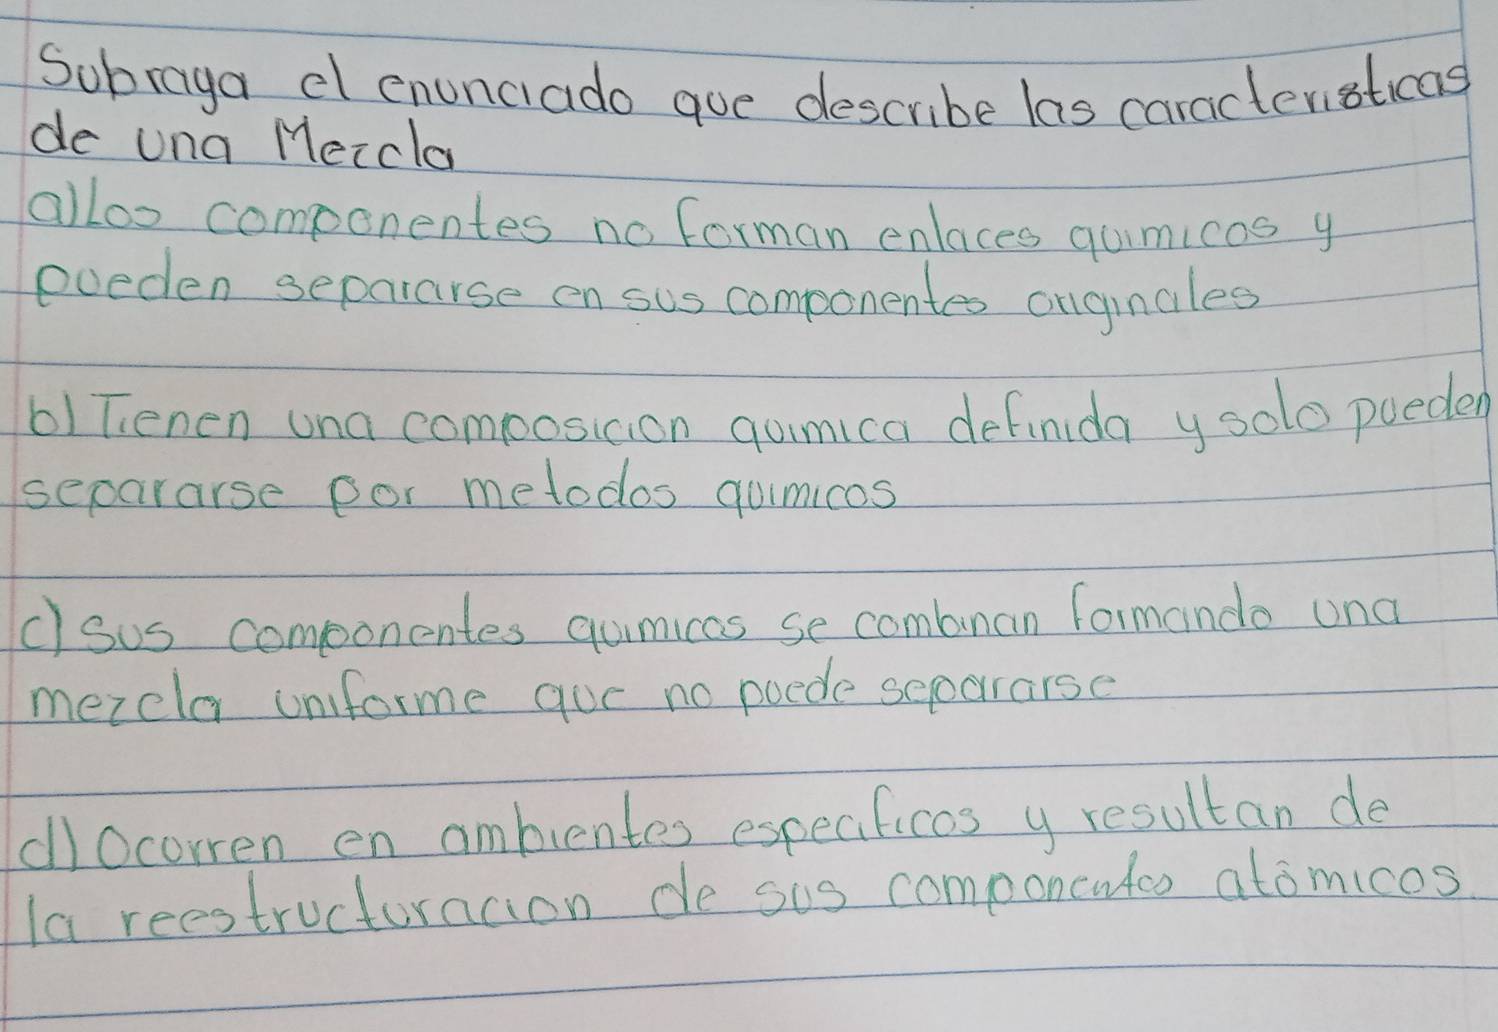 Subraya el enunciado que describe las caracteristicas
de una Mezcla
a) Los componentes no forman enlaces quimicos y
pueden separarse en sus componentes originales
b) Tienen una composicion quimica definida y solo pueden
separarse por metodos quimicos
c) sus componentes quimicos se combinan formando una
mezcla uniforme que no puede separarse
d) Ocurren en ambientes especificos y resultan de
la reestructuracion de sus componentes atómicos.